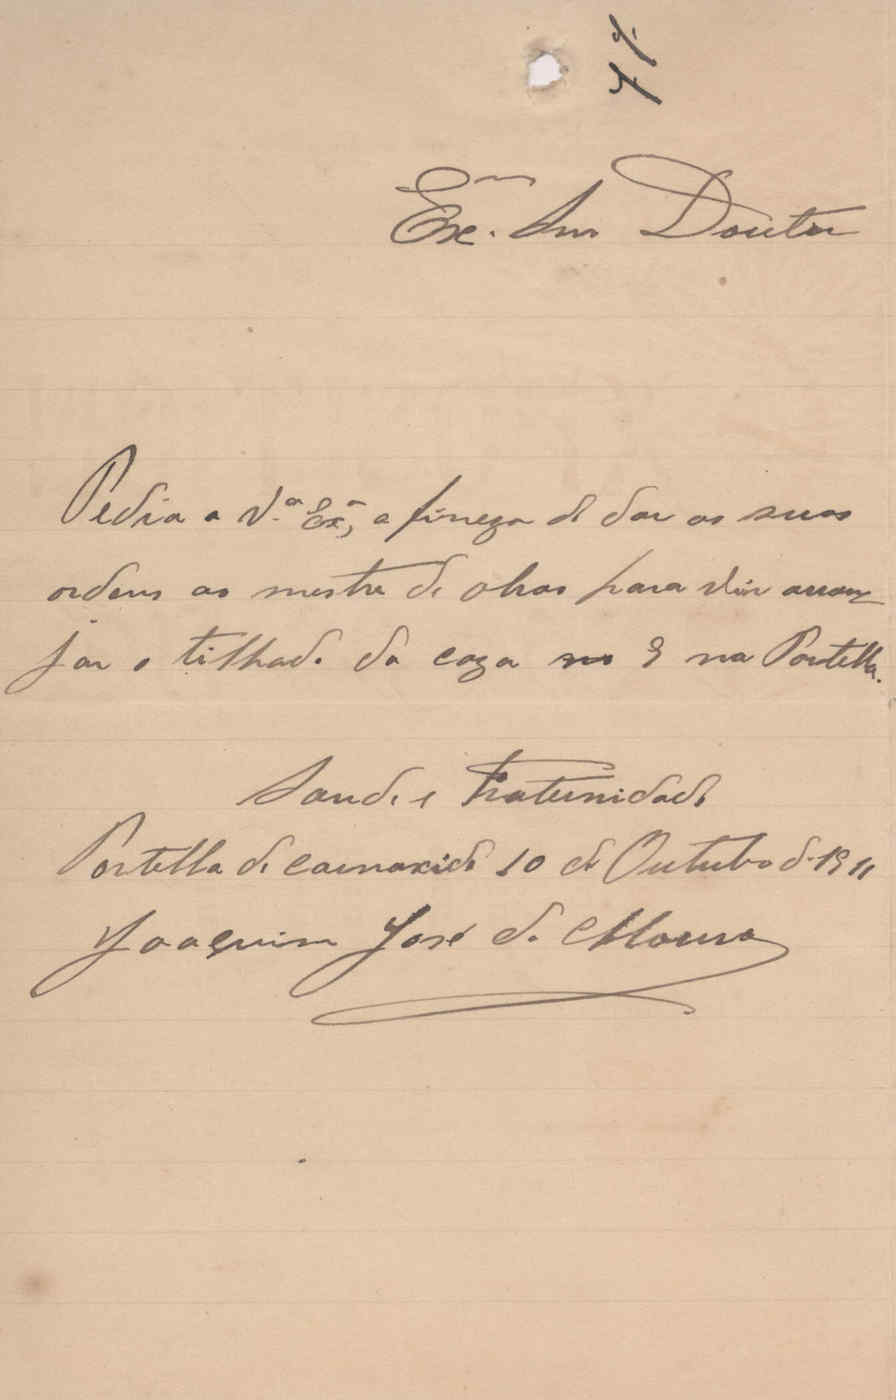 Exᵐ. Snr Doutor
Pedia a V.ª Exª, a fineza de dar as suas
ordens ao mestre de obras para vir arran-
jar o tilhado da caza no 9 na Portella.
Saude e Fraternidade
Portella de Carnaxide 10 de Outubro de 1911
Joaquim José de Moura